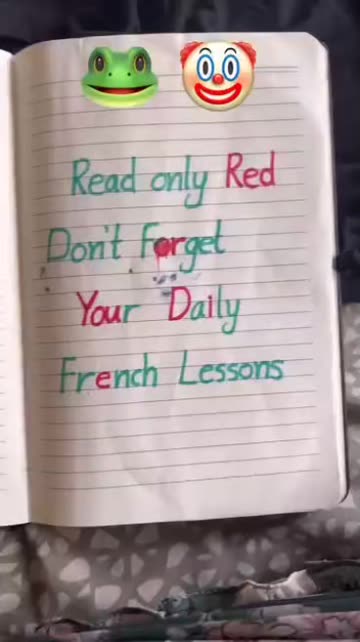 Read only Red
Don't Forget
Your Daily
French Lessons